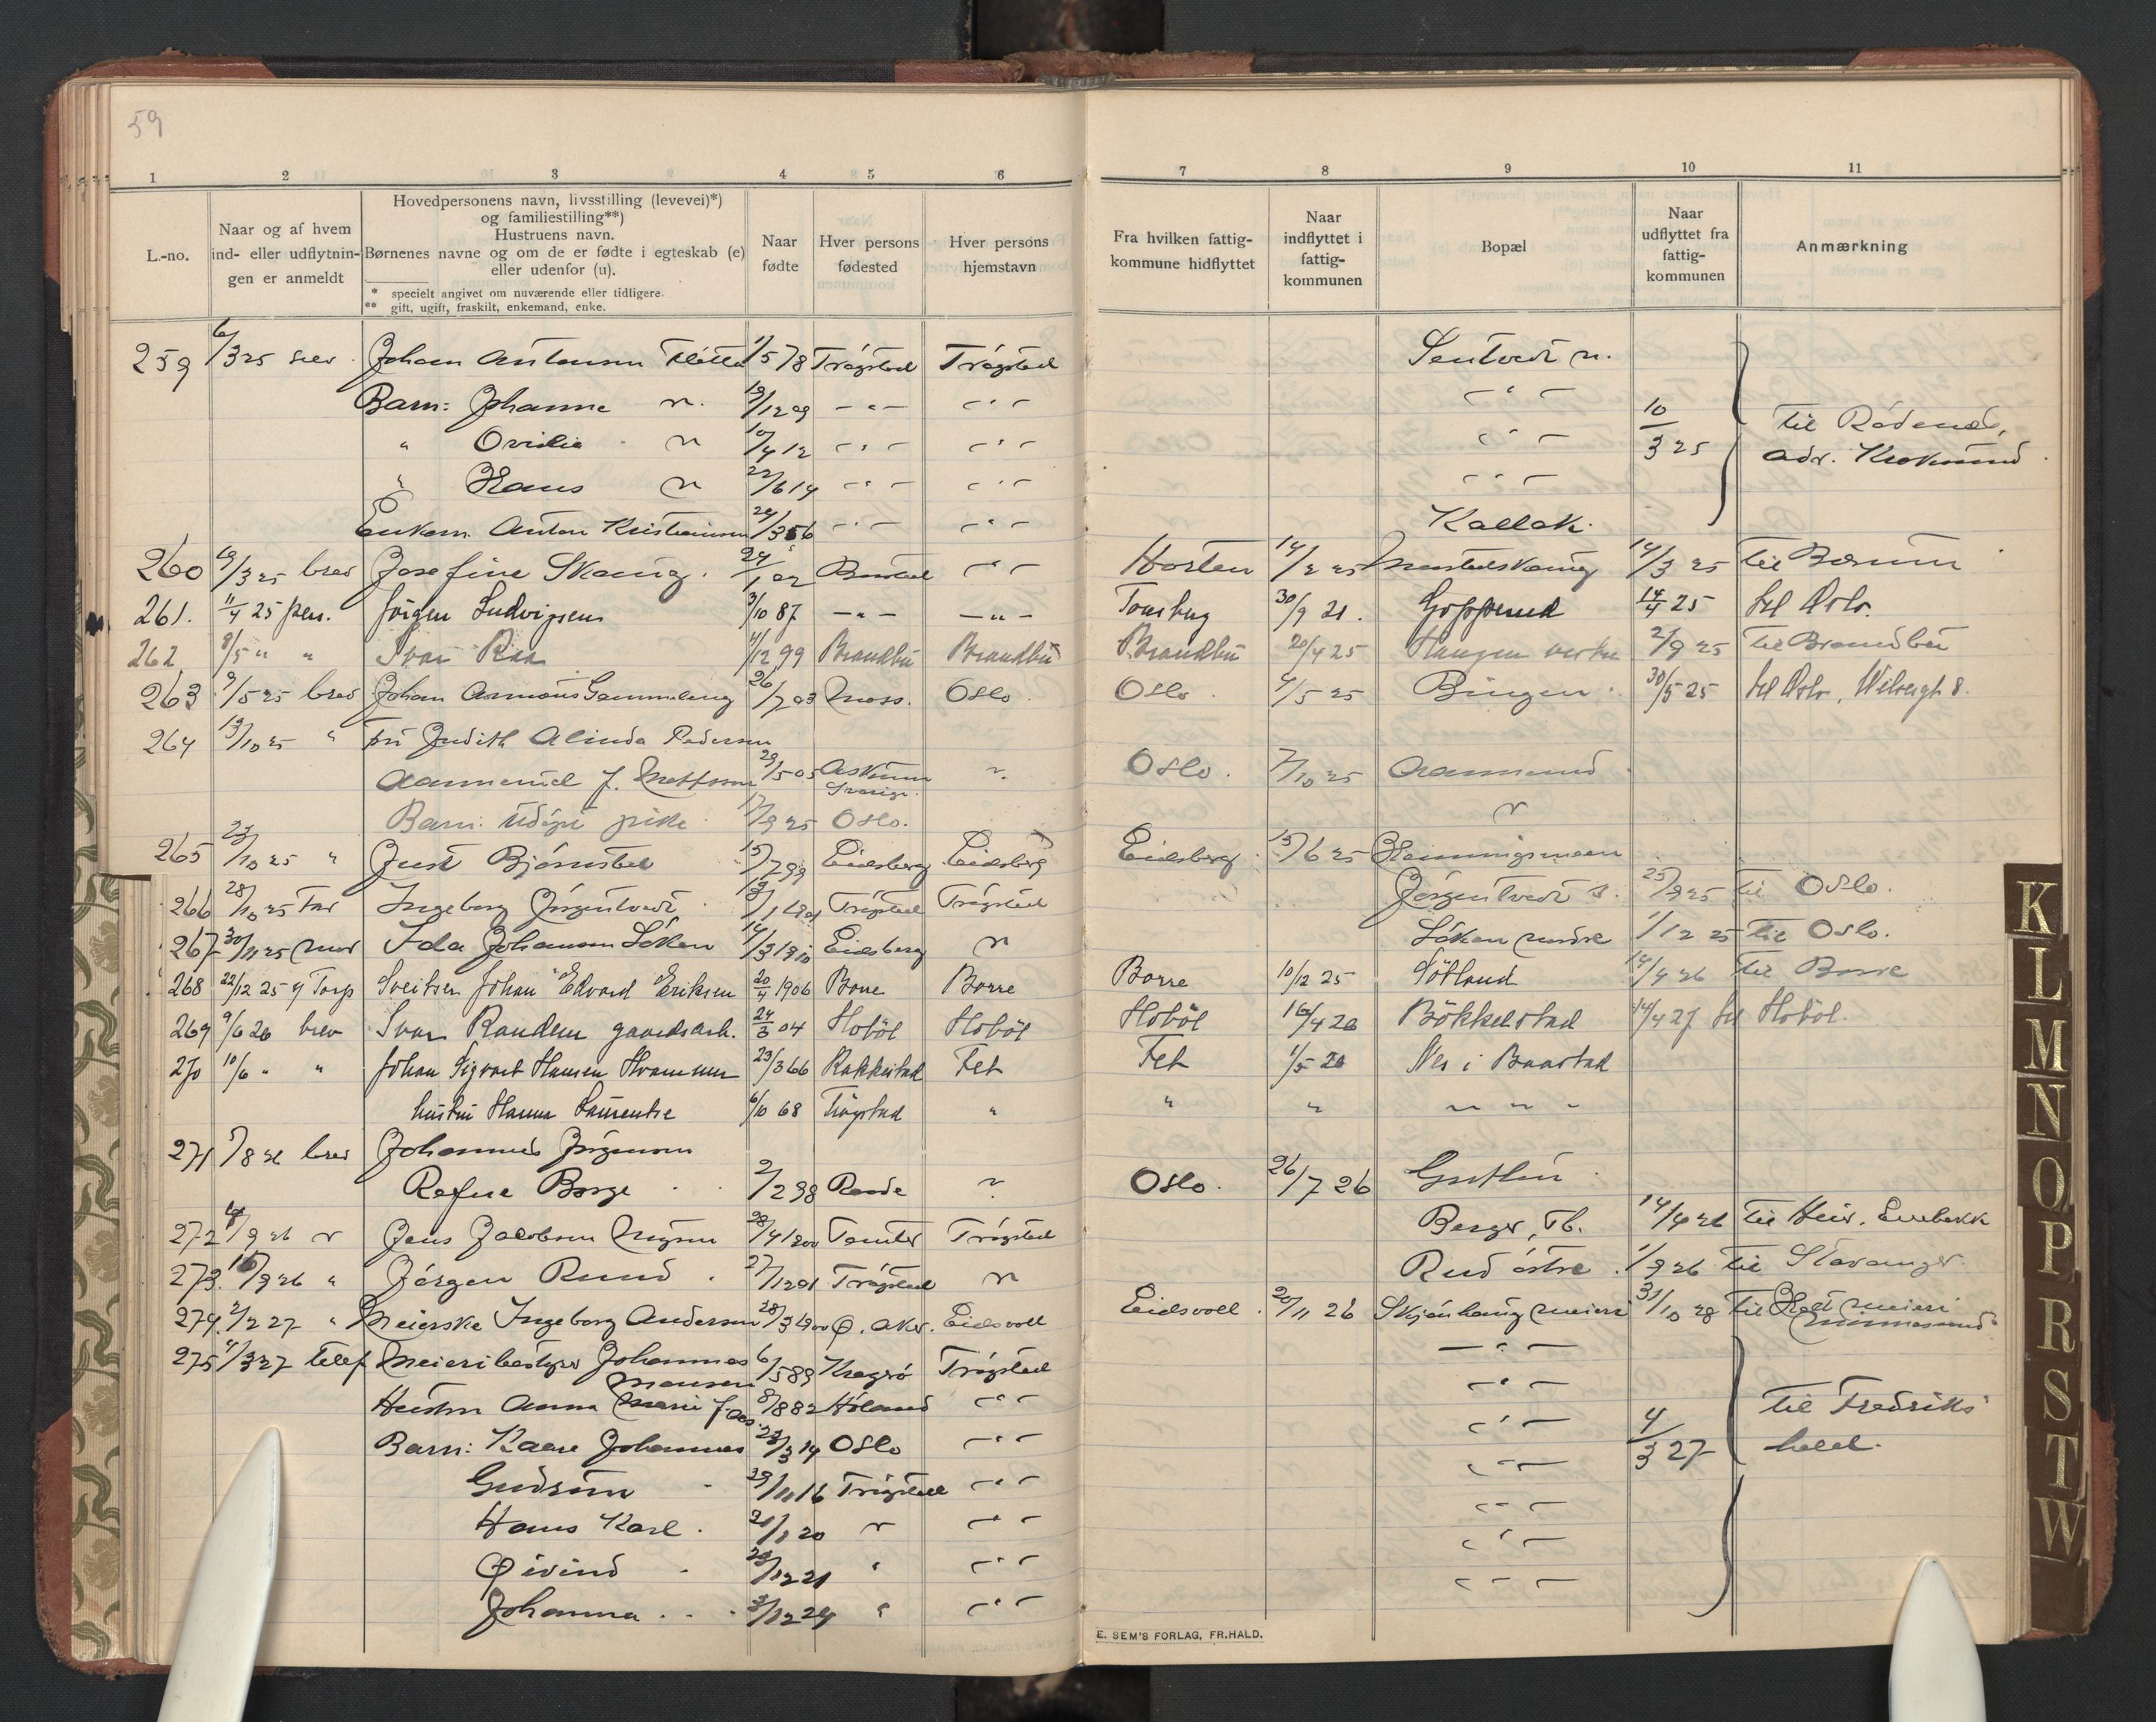 59
1 2 3 4 5 6 7 8 9 10 11
L.-no.
Naar og af hvem
ind- eller udflytnin-
gen er anmeldt
Hovedpersonens navn, livsstilling (levevei)*)
og familiestilling**)
Hustruens navn.
Børnenes navne og om de er fødte i egteskab (e)
eller udenfor (u).
* specielt angivet om nuværende eller tidligere.
** gift, ugift, fraskilt, enkemand, enke.
Naar
fødte
Hver persons
fødested
Hver persons
hjemstavn
Fra hvilken fattig-
kommune hidflyttet
Naar
indflyttet i
fattig-
kommunen
Bopæl
Naar
udflyttet fra
fattig-
kommunen
Anmærkning
259 6/3 25 Johan Antonsen 1/5 78 Trøgstad Trøgstad Sentvedt n.
Barn: Johanne 12 09 — " — — " — — " —
" Ovidia 10/4 12 — " — — " — — " — 10/3 25 Til Rødenes,
" Hans 22/6 14 — " — — " — — " — adr. Kroksund
Enkem. Anton Kristiansen 56 — " — — " — Kallak.
260 /3 25 brev Josefine Skaug. 24/1 02 — " — Horten 14/2 25 14/3 25 til Bærum
261. 11/4 25 pers. Jørgen Ludvigsen 3/10 87 — " — — " — Tønsberg 30/9 21. Gopperud 14/4 25 til Oslo.
262 8/5 " " Ivar Raa 4/12 99 Brandbu Brandbu Brandbu 20/4 25 Haugen 2/9 25 til Brandbu
263 9/5 25 brev Johan 26/7 03 Moss. Oslo. Oslo. 4/5 25 Bingen 30/5 25 til Oslo, 8.
264 13/10 25 " fru Judith Alinda Pedersen
Aamerud f. Mattsson 29/5 05 Askum Sverige. " Oslo. 7/10 25 Aamerud
Barn: Udøpt pike 17/9 25 Oslo. "
265 23/10 25 " Just Bjørnstad 15/7 99 Eidsberg Eidsberg Eidsberg 15/6 25 Henningsmoen
266 28/10 25 Far Ingeborg Jørgentvedt Trøgstad Trøgstad Jørgentvedt 25/9 25 til Oslo.
267 30/11 25 mor Ida Johansen Løken 14/3 1910 Eidsberg " Løken nndre 1/12 25 Til Oslo.
268 22/12 25 Torp Sveitser Johan Edvard Eriksen 20/4 1906 Borre Borre Borre 10/12 25 Søtland 14/4 26 til Borre
269 9/6 26 brev Ivar Randem gaardsarb. 04 Hobøl Hobøl Hobøl 16/4 26 Bøkkelstad 14/4 27 til Hobøl.
270 10/6 " " Johan Sigvart Hansen 23/3 66 Rakkestad Fet Fet 1/5 26 Nes i Baastad
hustru Hanna Laurentse 6/10 68 Trøgstad " " " " " "
271 /8 26 brev Johannes Jørgensen
Borge 2/2 98 Raade " Oslo. 26/7 26
272 /9 26 " Jens Jacobsen 28/4 1900 Tomter Trøgstad Berger, Tb. 14/4 26 til Enebakk
273. /9 26 " Jørgen Ruud 27/12 01 Trøgstad " Rud østre 1/9 26 til Stavanger
274. 2/2 27 " Meierske Ingeborg Andersen 28/3 1900 Ø. Aker. Eidsvoll Eidsvoll 20/11 26 Skjønhaug meieri 31/10 28 Til meieri
275 4/3 27 telef Meieribestyrer Johannes 6/5 89 Kragerø Trøgstad — " —
Hansen
Hustru Anna Marie f. 8/8 82 Høland — " — — " — Til Fredriks-
Barn: Kaare Johannes 14 Oslo — " — — " — 4/3 27 hald.
Gudrun 29/11 16 Trøgstad — " — — " —
Hans Karl. 21/1 20 " — " — — " —
Øivind 12 21 " — " — — " —
Johanna 3/12 24 " — " — — " —
E. SEM'S FORLAG, FR.HALD.
K
L
M
N
O
P
R
S
T
W